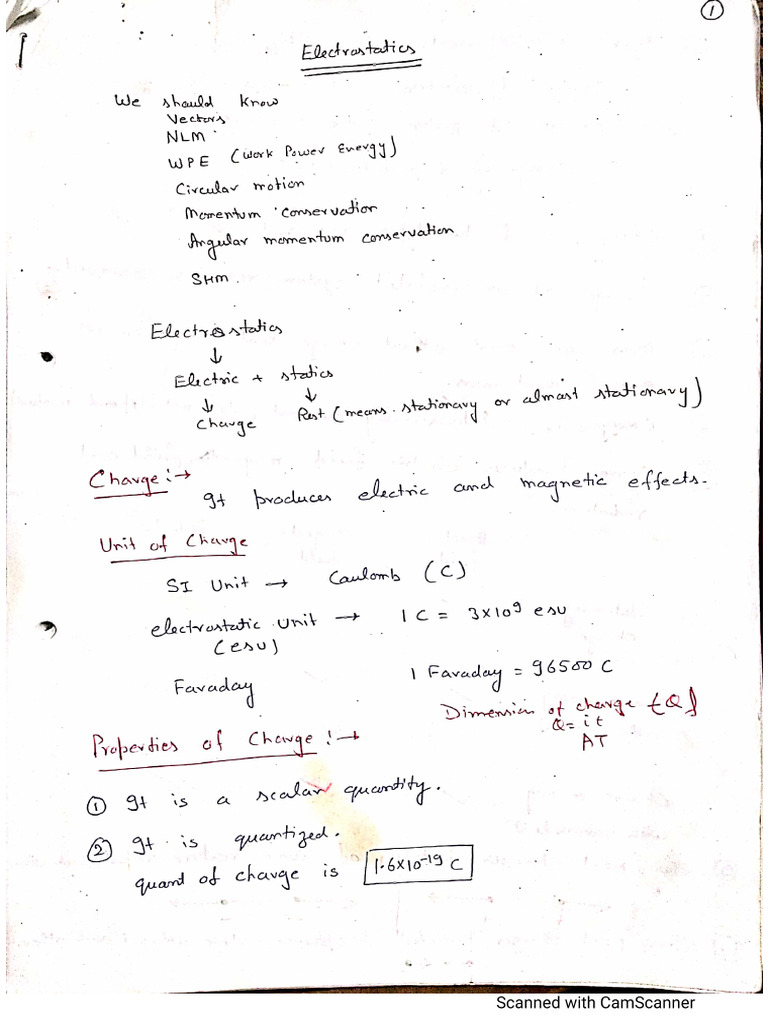 1
Electrostatics
We should know
Vectors
NLM
WPE (Work Power Energy)
Circular motion
Momentum conservation
Angular momentum conservation
SHM.
Electrostatics
↓
Electric + statics
↓ ↓
Charge Rest (means stationary or almost stationary)
Charge :→
It produces electric and magnetic effects.
Unit of Charge
SI Unit → Caulomb (C)
electrostatic Unit → 1 C = 3×10⁹ esu
(esu)
Faraday 1 Faraday = 96500 C
Dimension of charge {Q}
Q = it
AT
Properties of Charge :→
① It is a scalar quantity.
② It is quantized.
quant of charge is 1.6×10⁻¹⁹ C
Scanned with CamScanner